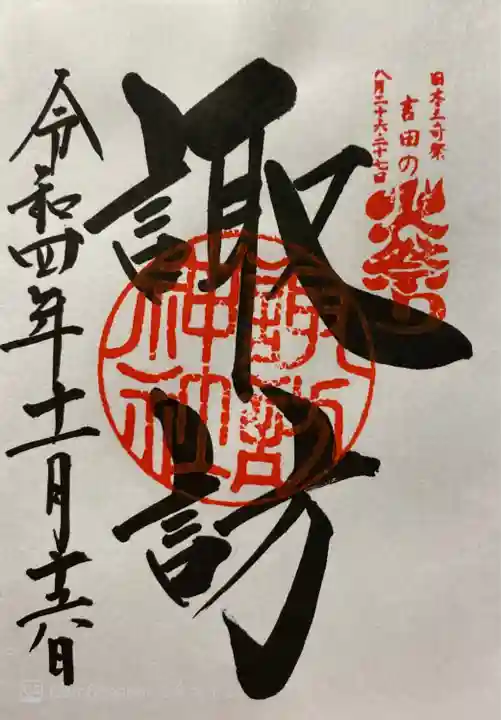 日本三奇祭
吉田の
火祭り
八月二十六、二十七日
諏訪
諏訪
神社
令和四年十一月十六日